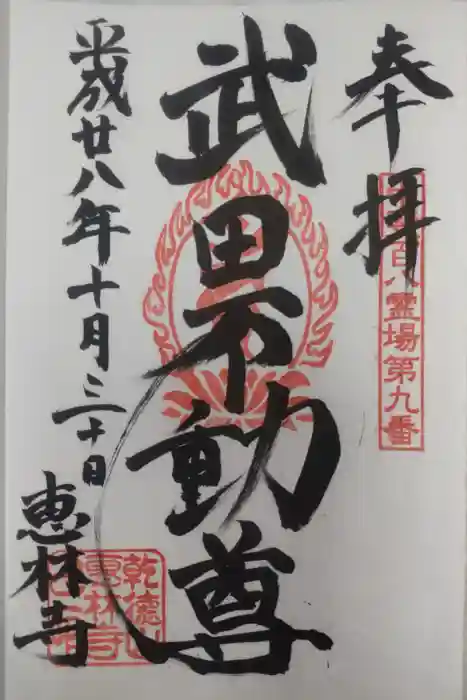 奉拝
百八霊場第九番
武田不動尊
平成廿八年十月三十日
恵林寺
乾徳山
恵林寺